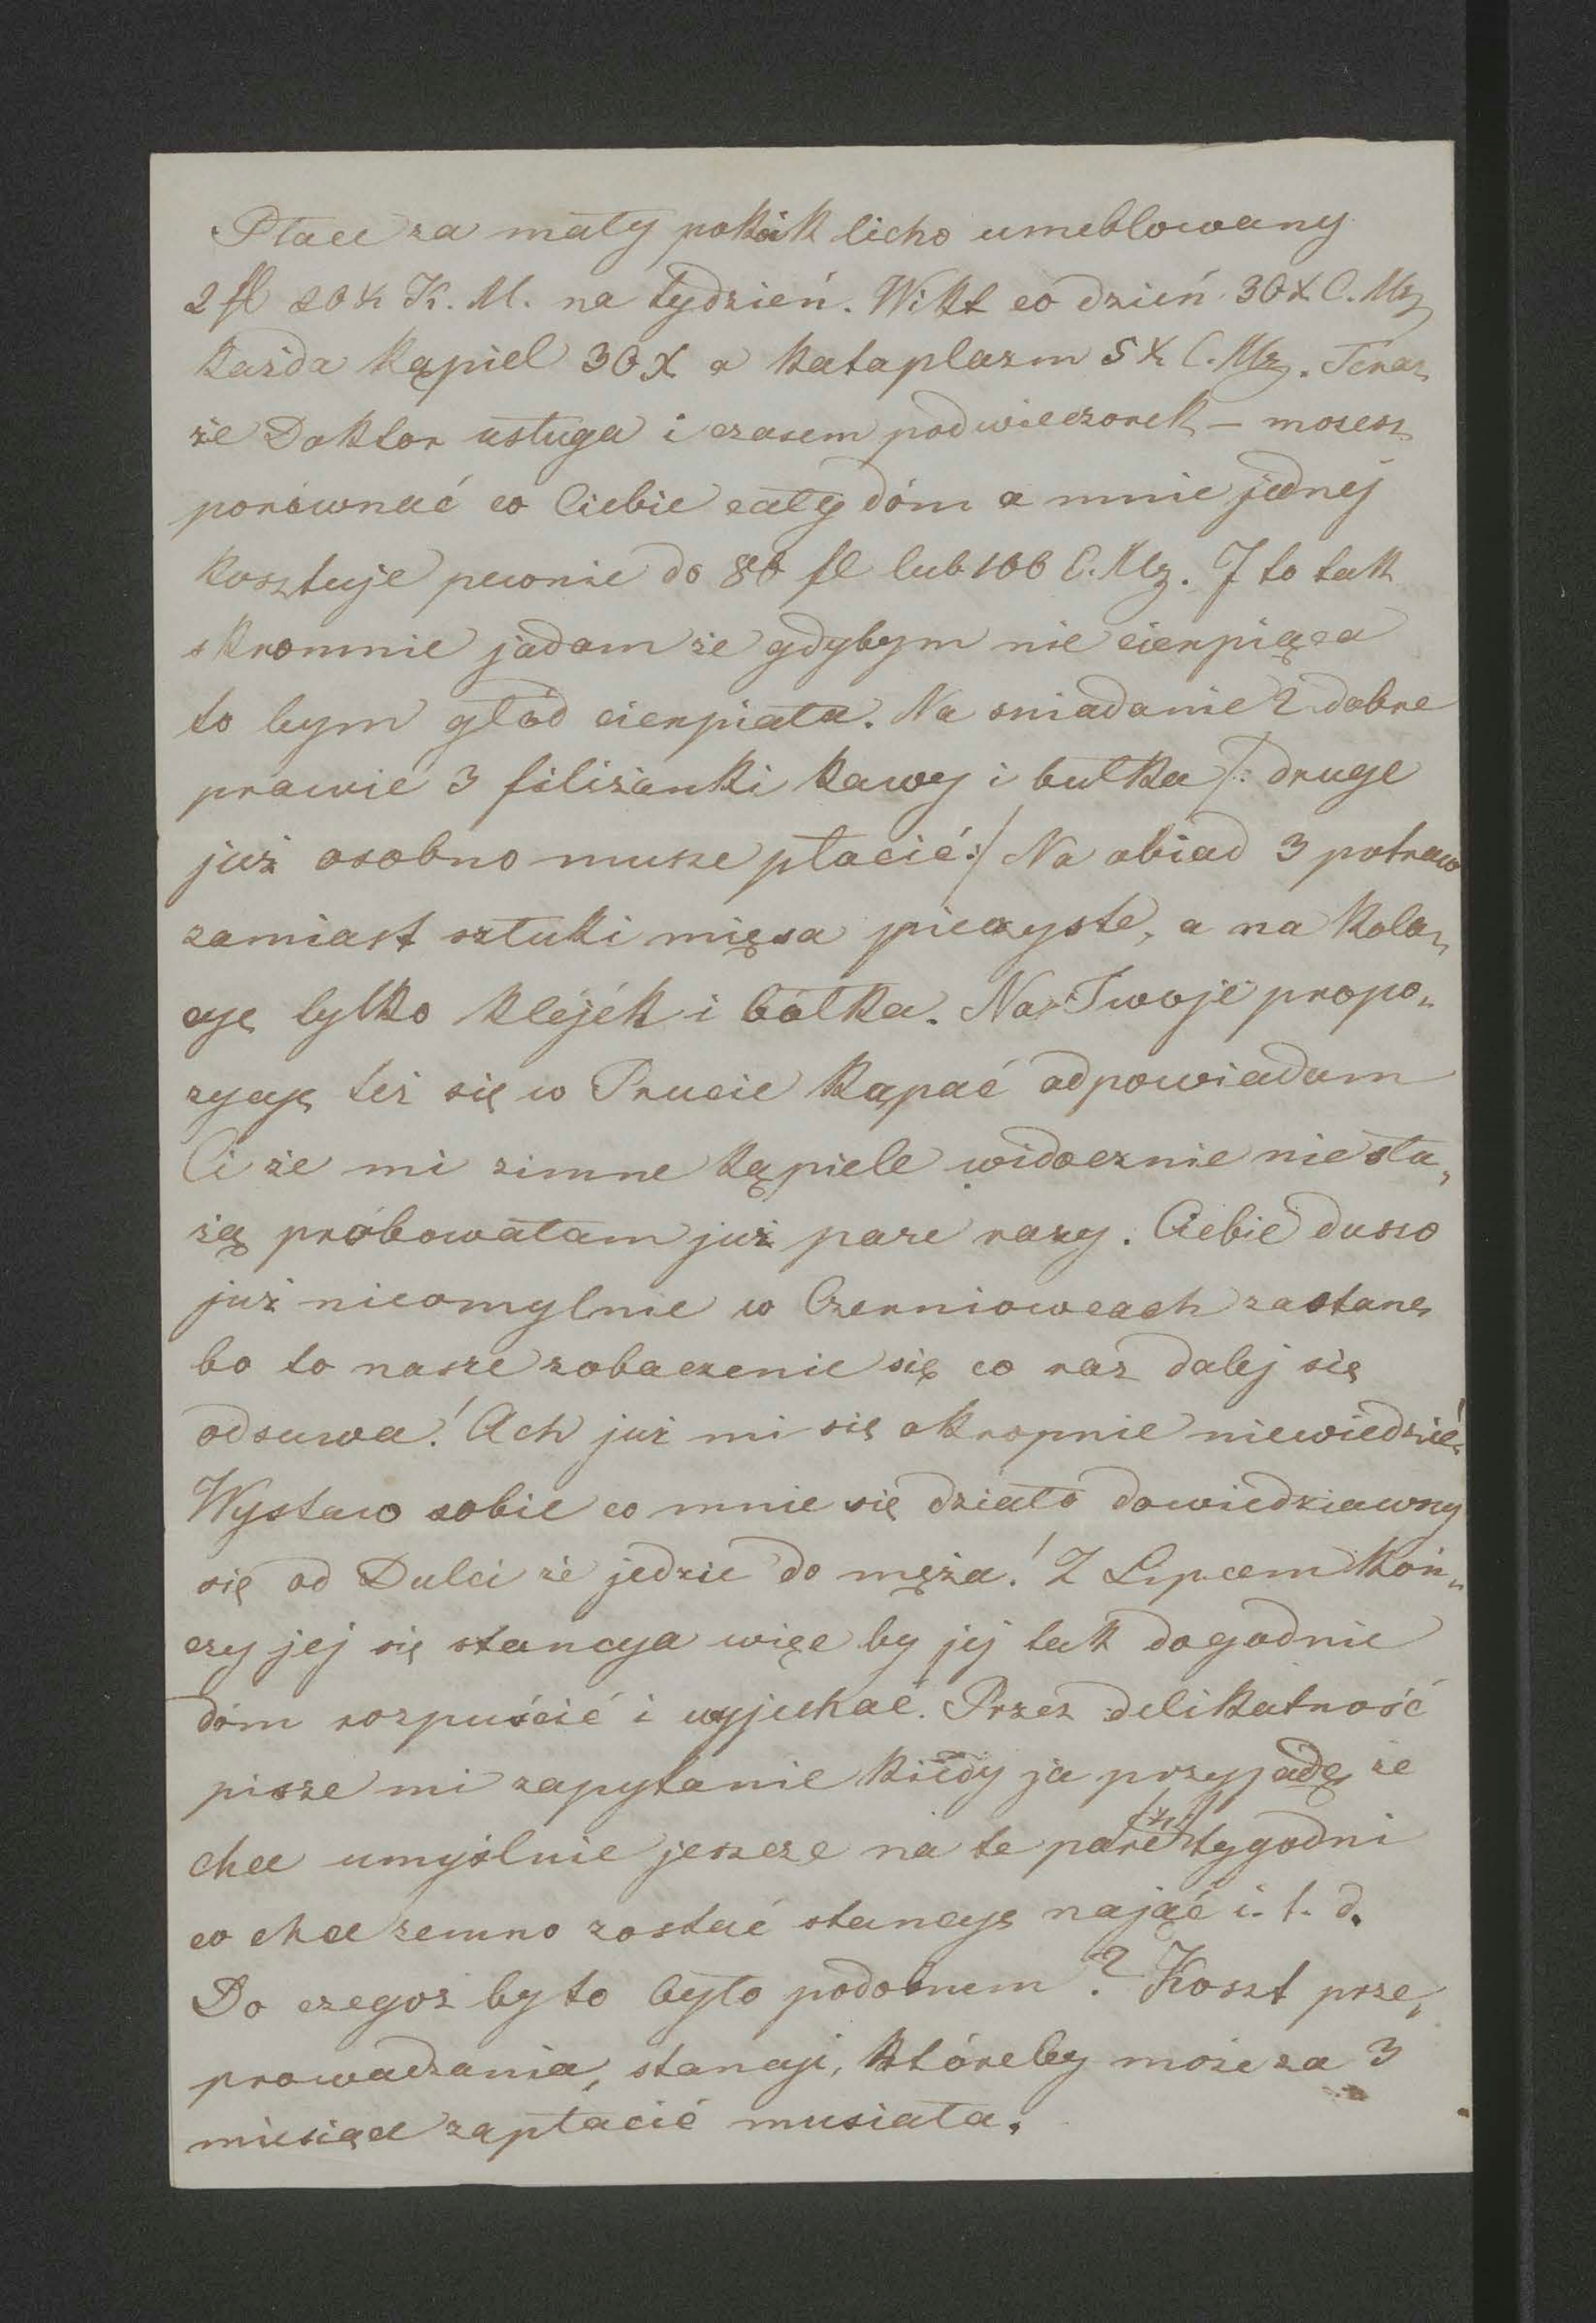 Płace za mały pokoik licho umeblowany
2 fl 20 x K. M. na tydzień. Wikt co dzień 30 x C. Mz
każda kąpiel 30 x a kataplazm 5 x C. Mz. Teraz
że Doktor usługa i czasem podwieczorek – mozesz
porównać co Ciebie cały dóm a mnie jednej
kosztuje pewnie do 80 fl lub 100 C. Mz. I to tak
skromnie jadam że gdybym nie cierpiąca
to bym głód cierpiała. Na sniadanie 2 dobre
prawie 3 filiżanki kawy i bułka /: druge
już osobno musze płacić :/ Na obiad 3 potraw
zamiast sztuki mięsa pieczyste, a na kola„
cyę tylko kléjék i bółka. Na Twoje propo„
zycyę też się w Prucie kąpać odpowiadam
Ci że mi zimne kąpiele widocznie nie słu„
żą próbowałam już pare razy. Ciebie duszo
już nieomylnie w Czerniowcach zastanę
bo to nasze zobaczenie się co raz dalej się
odsuwa! Ach już mi się okropnie niewiedzie!
Wystaw sobie co mnie się działo dowiedziawszy
się od Dulci że jedzie do męża! Z Lipcem koń„
czy jej się stancya więc by jej tak dogodnie
dóm rozpuścić i wyjechać. Przez delikatność
pisze mi zapytanie kiedy ja przyjadę że
chce umyślnie jeszcze na te pare tygodni
co chce zemno zostać stancyę nająć i. t. d.
Do czegoz by to było podobnem? Koszt prze„
prowadzania, stancyi, któreby może za 3
miesiące zapłacić musiała.